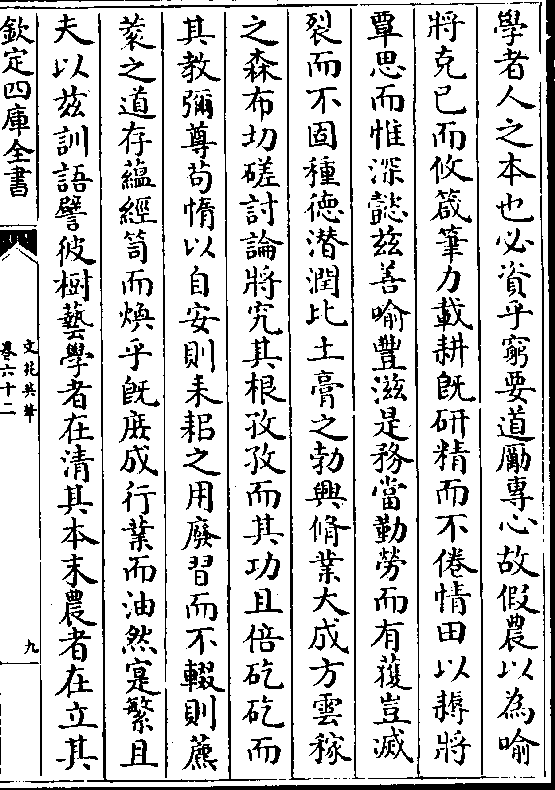 學者人之本也必資乎窮要道勵專心故假農以為喻
將克已而攸箴筆力載耕既研精而不倦情田以耨將
覃思而惟深懿兹善喻豐滋是務當勤勞而有獲豈滅
裂而不固種德潛潤比土膏之勃興脩業大成方雲稼
之森布切磋討論將究其根孜孜而其功且倍矻矻而
其教彌尊苟惰以自安則耒耜之用廢習而不輟則藨
蔉之道存蘊經笥而煥乎既底成行業而油然寔繁且
夫以兹訓語譬彼樹藝學者在清其本末農者在立其
欽定四庫全書
文苑英華
卷六十二
九